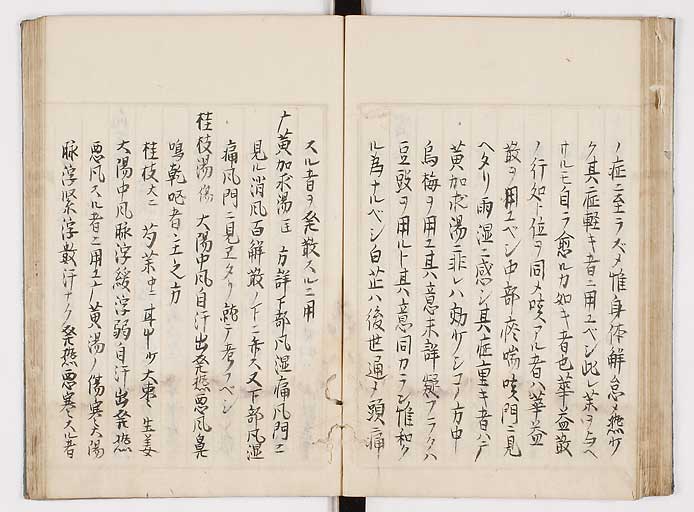 ノ症ニ至ラズメ惟身体解怠メ熱少
ク其症軽キ者ニ用ユベシ此レ薬ヲ与ヘ
ザルモ自ラ愈ルカ如キ者也華益散
ノ行処ト位ヲ同メ咳アル者ハ華益
散ヲ用ユベシ中部痰喘咳門ニ見
ヘタリ雨湿ニ感シ其症重キ者ハ广
黄加朮湯ニ非レハ効少シコノ方中
烏梅ヲ用ユ其意未詳疑フラクハ
豆豉ヲ用ルト其意同カラン惟和ク
ル為ナルベシ白芷ハ後世通メ頭痛
スル者ヲ発散スルニ用
广黄加朮湯 方詳下部風湿痛風門ニ
見ル消風百解散ノ下ニ赤ス又下部風湿
痛風門ニ見ヱタリ就テ考フベシ
桂枝湯傷 大陽中風自汗出発熱悪風鼻
鳴乾嘔者主之方
桂枝大ニ 芍薬中ニ 甘中 少 大棗 生姜
大陽中風脉浮緩浮弱自汗出発熱
悪風スル者ニ用ユ广黄湯ノ傷寒大陽
脉浮緊浮数汗ナク発熱悪寒スル者